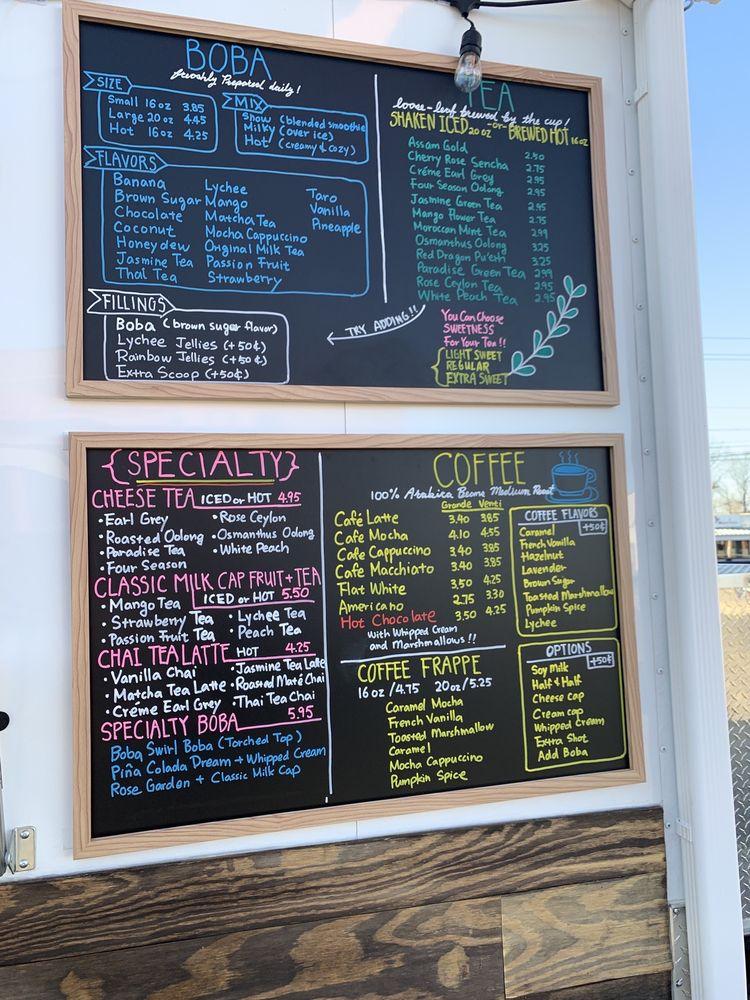 BOBA
freshly Prepared daily!
SIZE
Small 16oz 3.85
Large 20oz 4.45
Hot 16oz 4.25
MIX
Snow (blended smoothie
Milky (over ice)
Hot (creamy & cozy)
FLAVORS
Banana
Brown Sugar
Chocolate
Coconut
Honeydew
Jasmine Tea
Thai Tea
Lychee
Mango
Matcha Tea
Mocha Cappuccino
Original Milk Tea
Passion Fruit
Strawberry
Taro
Vanilla
Pineapple
FILLINGS
Boba (brown sugar flavor)
Lychee Jellies (+50¢)
Rainbow Jellies (+50¢)
Extra Scoop (+50¢)
TRY ADDING!!
TEA
loose-leaf brewed by the cup!
SHAKEN ICED 20oz -or- BREWED HOT 16oz
Assam Gold 2.50
Cherry Rose Sencha 2.75
Créme Earl Grey 2.95
Four Season Oolong 2.95
Jasmine Green Tea 2.95
Mango Flower Tea 2.75
Moroccan Mint Tea 2.99
Osmanthus Oolong 3.25
Red Dragon Pu'erh 3.25
Paradise Green Tea 2.99
Rose Ceylon Tea 2.95
White Peach Tea 2.95
You Can Choose
SWEETNESS
For Your Tea!!
LIGHT SWEET
REGULAR
EXTRA SWEET
{SPECIALTY}
CHEESE TEA ICED or HOT 4.95
•Earl Grey
•Roasted Oolong
•Paradise Tea
•Four Season
•Rose Ceylon
•Osmanthus Oolong
•White Peach
CLASSIC MILK CAP FRUIT+TEA
ICED or HOT 5.50
•Mango Tea
•Strawberry Tea
•Passion Fruit Tea
•Lychee Tea
•Peach Tea
CHAI TEA LATTE HOT 4.25
•Vanilla Chai
•Matcha Tea Latte
•Créme Earl Grey
•Jasmine Tea Latte
•Roasted Maté Chai
•Thai Tea Chai
SPECIALTY BOBA 5.95
Boba Swirl Boba (Torched Top)
Piña Colada Dream + Whipped Cream
Rose Garden + Classic Milk Cap
COFFEE
100% Arabica Beans Medium Roast
Grande Venti
Café Latte 3.40 3.85
Café Mocha 4.10 4.55
Café Cappuccino 3.40 3.85
Café Macchiato 3.40 3.85
Flat White 3.50 4.25
Americano 2.75 3.30
Hot Chocolate 3.50 4.25
With Whipped Cream
and Marshmallows!!
COFFEE FRAPPE
16oz/4.75 20oz/5.25
Caramel Mocha
French Vanilla
Toasted Marshmallow
Caramel
Mocha Cappuccino
Pumpkin Spice
COFFEE FLAVORS
+50¢
Caramel
French Vanilla
Hazelnut
Lavender
Brown Sugar
Toasted Marshmallow
Pumpkin Spice
Lychee
OPTIONS
+50¢
Soy Milk
Half & Half
Cheese cap
Cream cap
Whipped Cream
Extra Shot
Add Boba